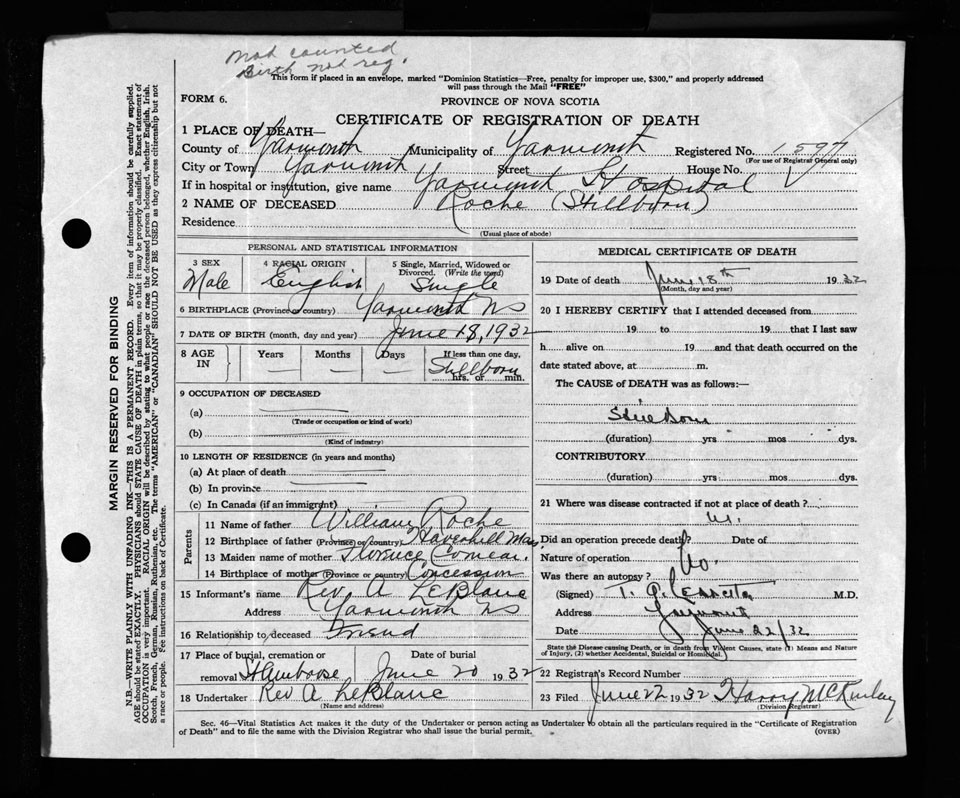 Not counted
Birth not reg.
This form if placed in an envelope, marked "Dominion Statistics—Free, penalty for improper use, $300," and properly addressed
will pass through the Mail "FREE"
FORM 6.
PROVINCE OF NOVA SCOTIA
CERTIFICATE OF REGISTRATION OF DEATH
1 PLACE OF DEATH—
County of Yarmouth Municipality of Yarmouth Registered No. 1597
(For use of Registrar General only)
City or Town Yarmouth Street House No.
If in hospital or institution, give name Yarmouth Hospital
2 NAME OF DECEASED Roche (Stillborn)
Residence
(Usual place of abode)
PERSONAL AND STATISTICAL INFORMATION
3 SEX 4 RACIAL ORIGIN 5 Single, Married, Widowed or
Divorced. (Write the word)
Male English Single
6 BIRTHPLACE (Province or country) Yarmouth NS
7 DATE OF BIRTH (month, day and year) June 18, 1932
8 AGE IN Years Months Days If less than one day,
Stillborn
hrs. or min.
9 OCCUPATION OF DECEASED
(a)
(Trade or occupation or kind of work)
(b)
(Kind of industry)
10 LENGTH OF RESIDENCE (in years and months)
(a) At place of death
(b) In province
(c) In Canada (if an immigrant)
Parents
11 Name of father William Roche
12 Birthplace of father (Province or country) Haverhill Mass
13 Maiden name of mother Florence Comeau
14 Birthplace of mother (Province or country) Concession
15 Informant's name Rev. A LeBlanc
Address Yarmouth NS
16 Relationship to deceased Friend
17 Place of burial, cremation or Date of burial
removal St Ambrose June 20 1932
18 Undertaker Rev A LeBlanc
(Name and address)
MEDICAL CERTIFICATE OF DEATH
19 Date of death June 18th 1932
(Month, day and year)
20 I HEREBY CERTIFY that I attended deceased from
19 to 19 that I last saw
h alive on 19 and that death occurred on the
date stated above, at m.
The CAUSE OF DEATH was as follows:—
Stillborn
(duration) yrs mos dys.
CONTRIBUTORY
(duration) yrs mos dys.
21 Where was disease contracted if not at place of death?
Did an operation precede death? Date of
Nature of operation No.
Was there an autopsy?
(Signed) M.D.
Address Yarmouth
Date June 22/32
State the Disease causing Death, or in death from Violent Causes, state (1) Means and Nature
of Injury, (2) whether Accidental, Suicidal or Homicidal.
22 Registrar's Record Number
23 Filed June 22 1932 Harry McKinley
(Division Registrar)
Sec. 46—Vital Statistics Act makes it the duty of the Undertaker or person acting as Undertaker to obtain all the particulars required in the "Certificate of Registration
of Death" and to file the same with the Division Registrar who shall issue the burial permit.
(OVER)
MARGIN RESERVED FOR BINDING
N.B.—WRITE PLAINLY WITH UNFADING INK—THIS IS A PERMANENT RECORD. Every item of information should be carefully supplied.
AGE should be stated EXACTLY. PHYSICIANS should STATE CAUSE OF DEATH in plain terms, so that it may be properly classified. Exact statement of
OCCUPATION is very important. RACIAL ORIGIN will be described by stating to what people or race the deceased person belonged, whether English, Irish,
Scotch, French, German, Russian, Ruthenian, etc. The terms "AMERICAN" or "CANADIAN" SHOULD NOT BE USED as they express citizenship but not
a race or people. Fee instructions on back of Certificate.